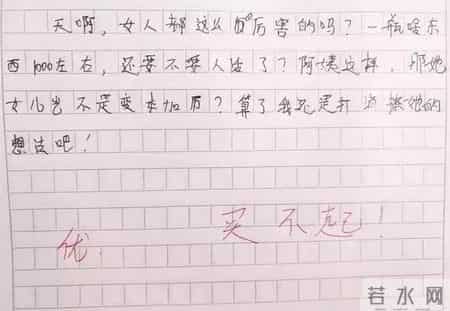 天啊，女人都这么厉害的吗？一瓶啥东
西1000左右，还要不要人活了？阿姨这样，那她
女儿岂不是变本加厉？算了我还是打消撩她的
想法吧！
优
买不起！
若水网